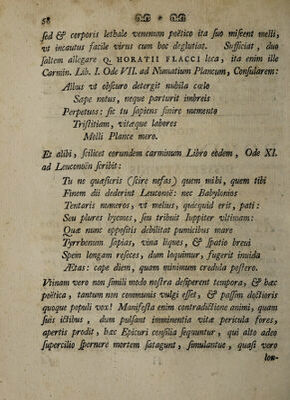 58
sed & corporis lethale venenum poëtico ita suo miscent melli,
vt incautus facile virus cum hoc deglutiat. Sufficiat, duo
saltem allegare Q. HORATII FLACCI loca, ita enim ille
Carmin. Lib. I. Ode VII. ad Numatium Plancum, Consularem:
Albus vt obscuro detergit nubila cælo
Sæpe notus, neque parturit imbreis
Perpetuos: sic tu sapiens finire memento
Tristitiam, vitæque labores
Molli Plance mero.
Et alibi, scilicet eorundem carminum Libro eodem, Ode XI.
ad Leuconoën scribit:
Tu ne quæsieris (scire nefas) quem mihi, quem tibi
Finem dii dederint Leuconoë: nec Babylonios
Tentaris numeros, vt melius, quicquid erit, pati:
Seu plures hyemes, seu tribuit Iuppiter vltimam:
Quæ nunc oppositis debilitat pumicibus mare
Tyrrhenum sapias, vina liques, & spatio breui
Spem longam reseces, dum loquimur, fugerit inuida
Ætas: cape diem, quam minimum credula postero.
Vtinam vero non simili modo nostra desiperent tempora, & hæc
poëtica, tantum non communis vulgi esset, & passim doctioris
quoque populi vox! Manifesta enim contradictione animi, quam
suis ictibus, dum pulsant imminentia vitæ pericula fores,
apertis prodit, hæc Epicuri consilia sequuntur, qui alto adeo
supercilio spernere mortem satagunt, simulantue, quasi vero
lon-